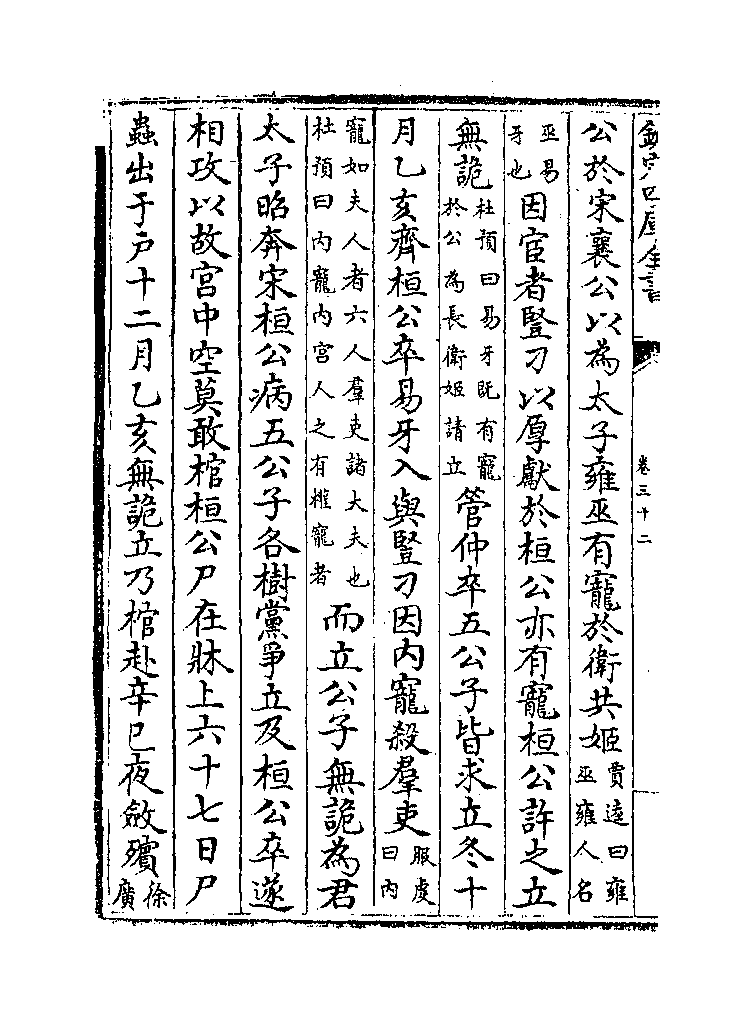 欽定四庫全書
卷三十二
公於宋襄公以為太子雍巫有寵於衛共姬賈逵曰雍巫雍人名
巫易牙也因宦者豎刁以厚獻於桓公亦有寵桓公許之立
無詭杜預曰易牙既有寵於公為長衛姬請立管仲卒五公子皆求立冬十
月乙亥齊桓公卒易牙入與豎刁因内寵殺羣吏服虔曰内
寵如夫人者六人羣吏諸大夫也杜預曰内寵内宮人之有權寵者而立公子無詭為君
太子昭奔宋桓公病五公子各樹黨爭立及桓公卒遂
相攻以故宮中空莫敢棺桓公尸在牀上六十七日尸
蟲出于戶十二月乙亥無詭立乃棺赴辛巳夜斂殯徐廣